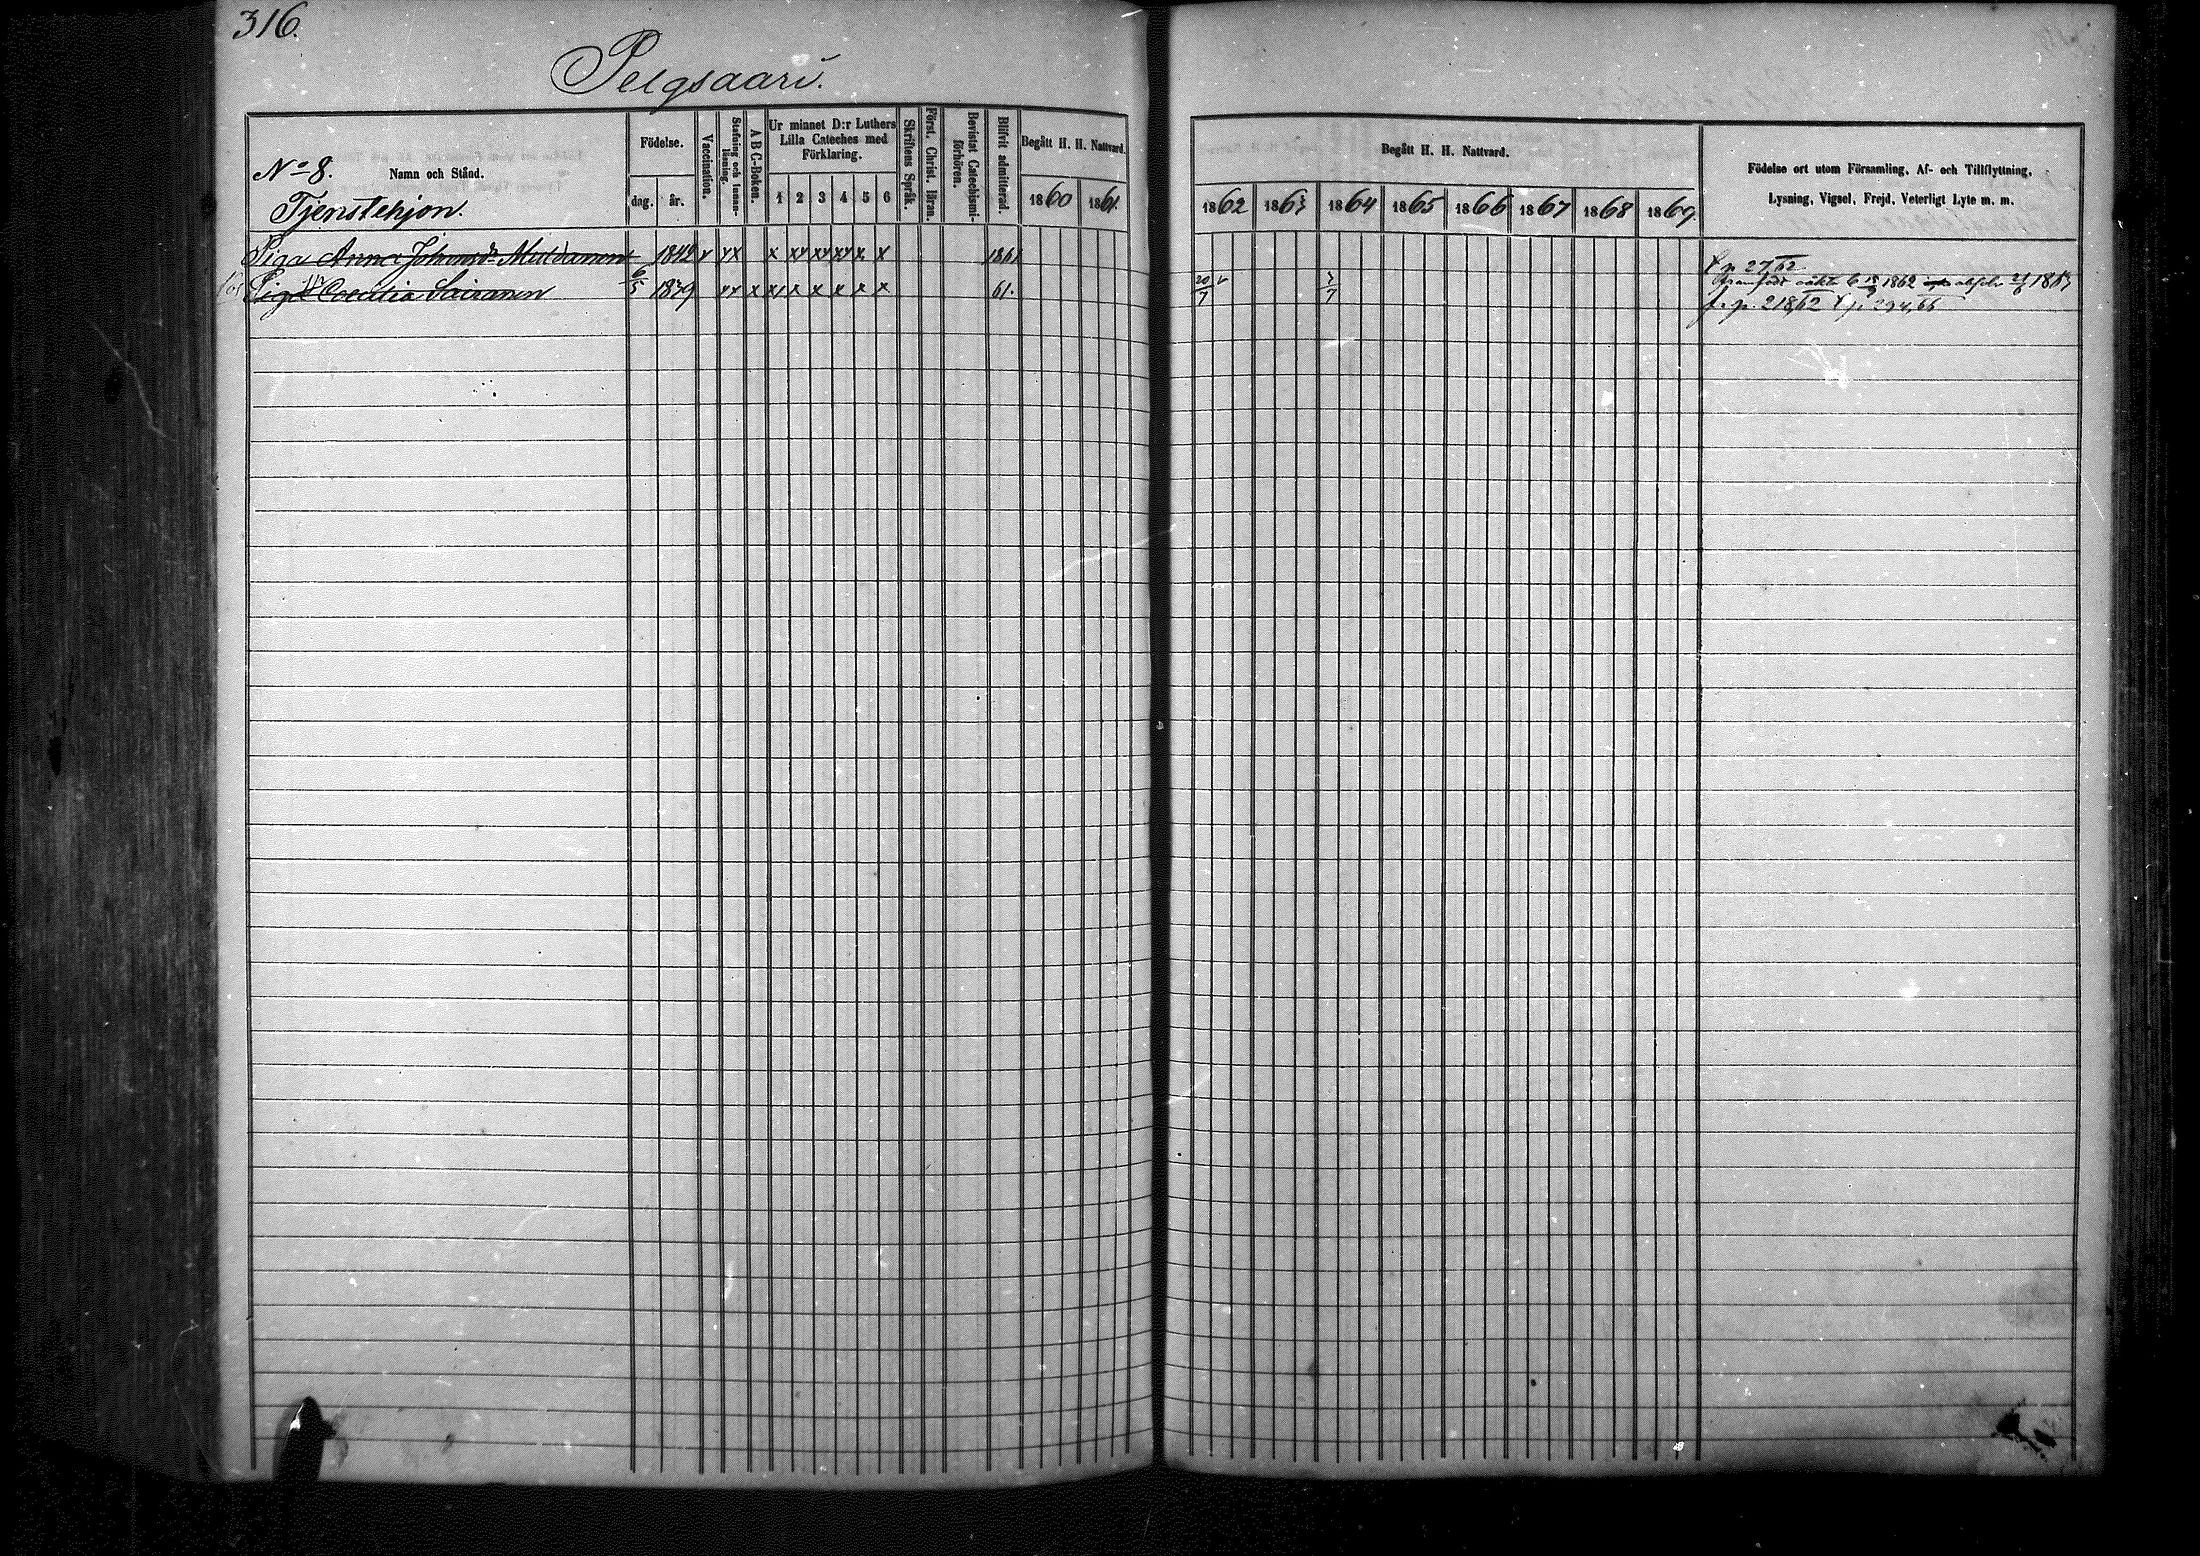 316.
Pelgsaari.
No 8.
Namn och Stånd.
Tjenstehjon.
Födelse.
dag. år.
Vaccination.
Stafning och Innan-läsning.
A B C-Boken.
Ur minnet D:r Luthers
Lilla Cateches med
Förklaring.
1 2 3 4 5 6
Skriftens Språk.
Först. Christ. Läran.
Bevistat Catechismi-förhören.
Blifvit admitterad.
Begått H. H. Nattvard.
1860 1861.
Begått H. H. Nattvard.
1862 1863 1864 1865 1866 1867 1868 1869.
Födelse ort utom Församling, Af- och Tillflyttning,
Lysning, Vigsel, Frejd, Veterligt Lyte m. m.
Piga Anna Johansdr Muldanen 1842 v xx x xx xx xx x x 1861
p. 27/62
Piga Coecilia Sairanen 6/5 1839 xx x x x x x x x 61. 20/7 3/7
oäkta 1862 1863
fr. p. 218,62 p. 294,66